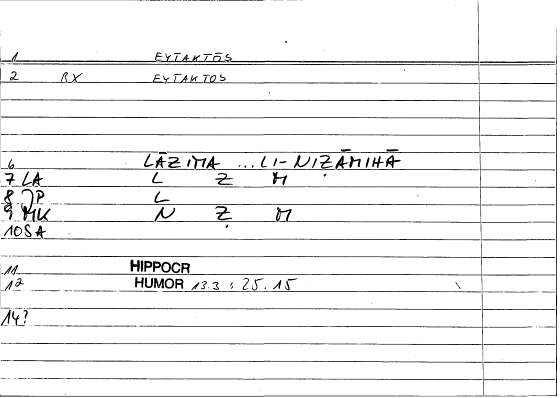 1 EYTAKTŌS
2 RX EYTAKTOS
6 LĀZIMA ... LI-NIẒĀMIHĀ
7 LA L Ẓ M
8 JP L
9 MK N Ẓ M
10 SA
11 HIPPOCR
12 HUMOR 13.3 : 25.15
14?